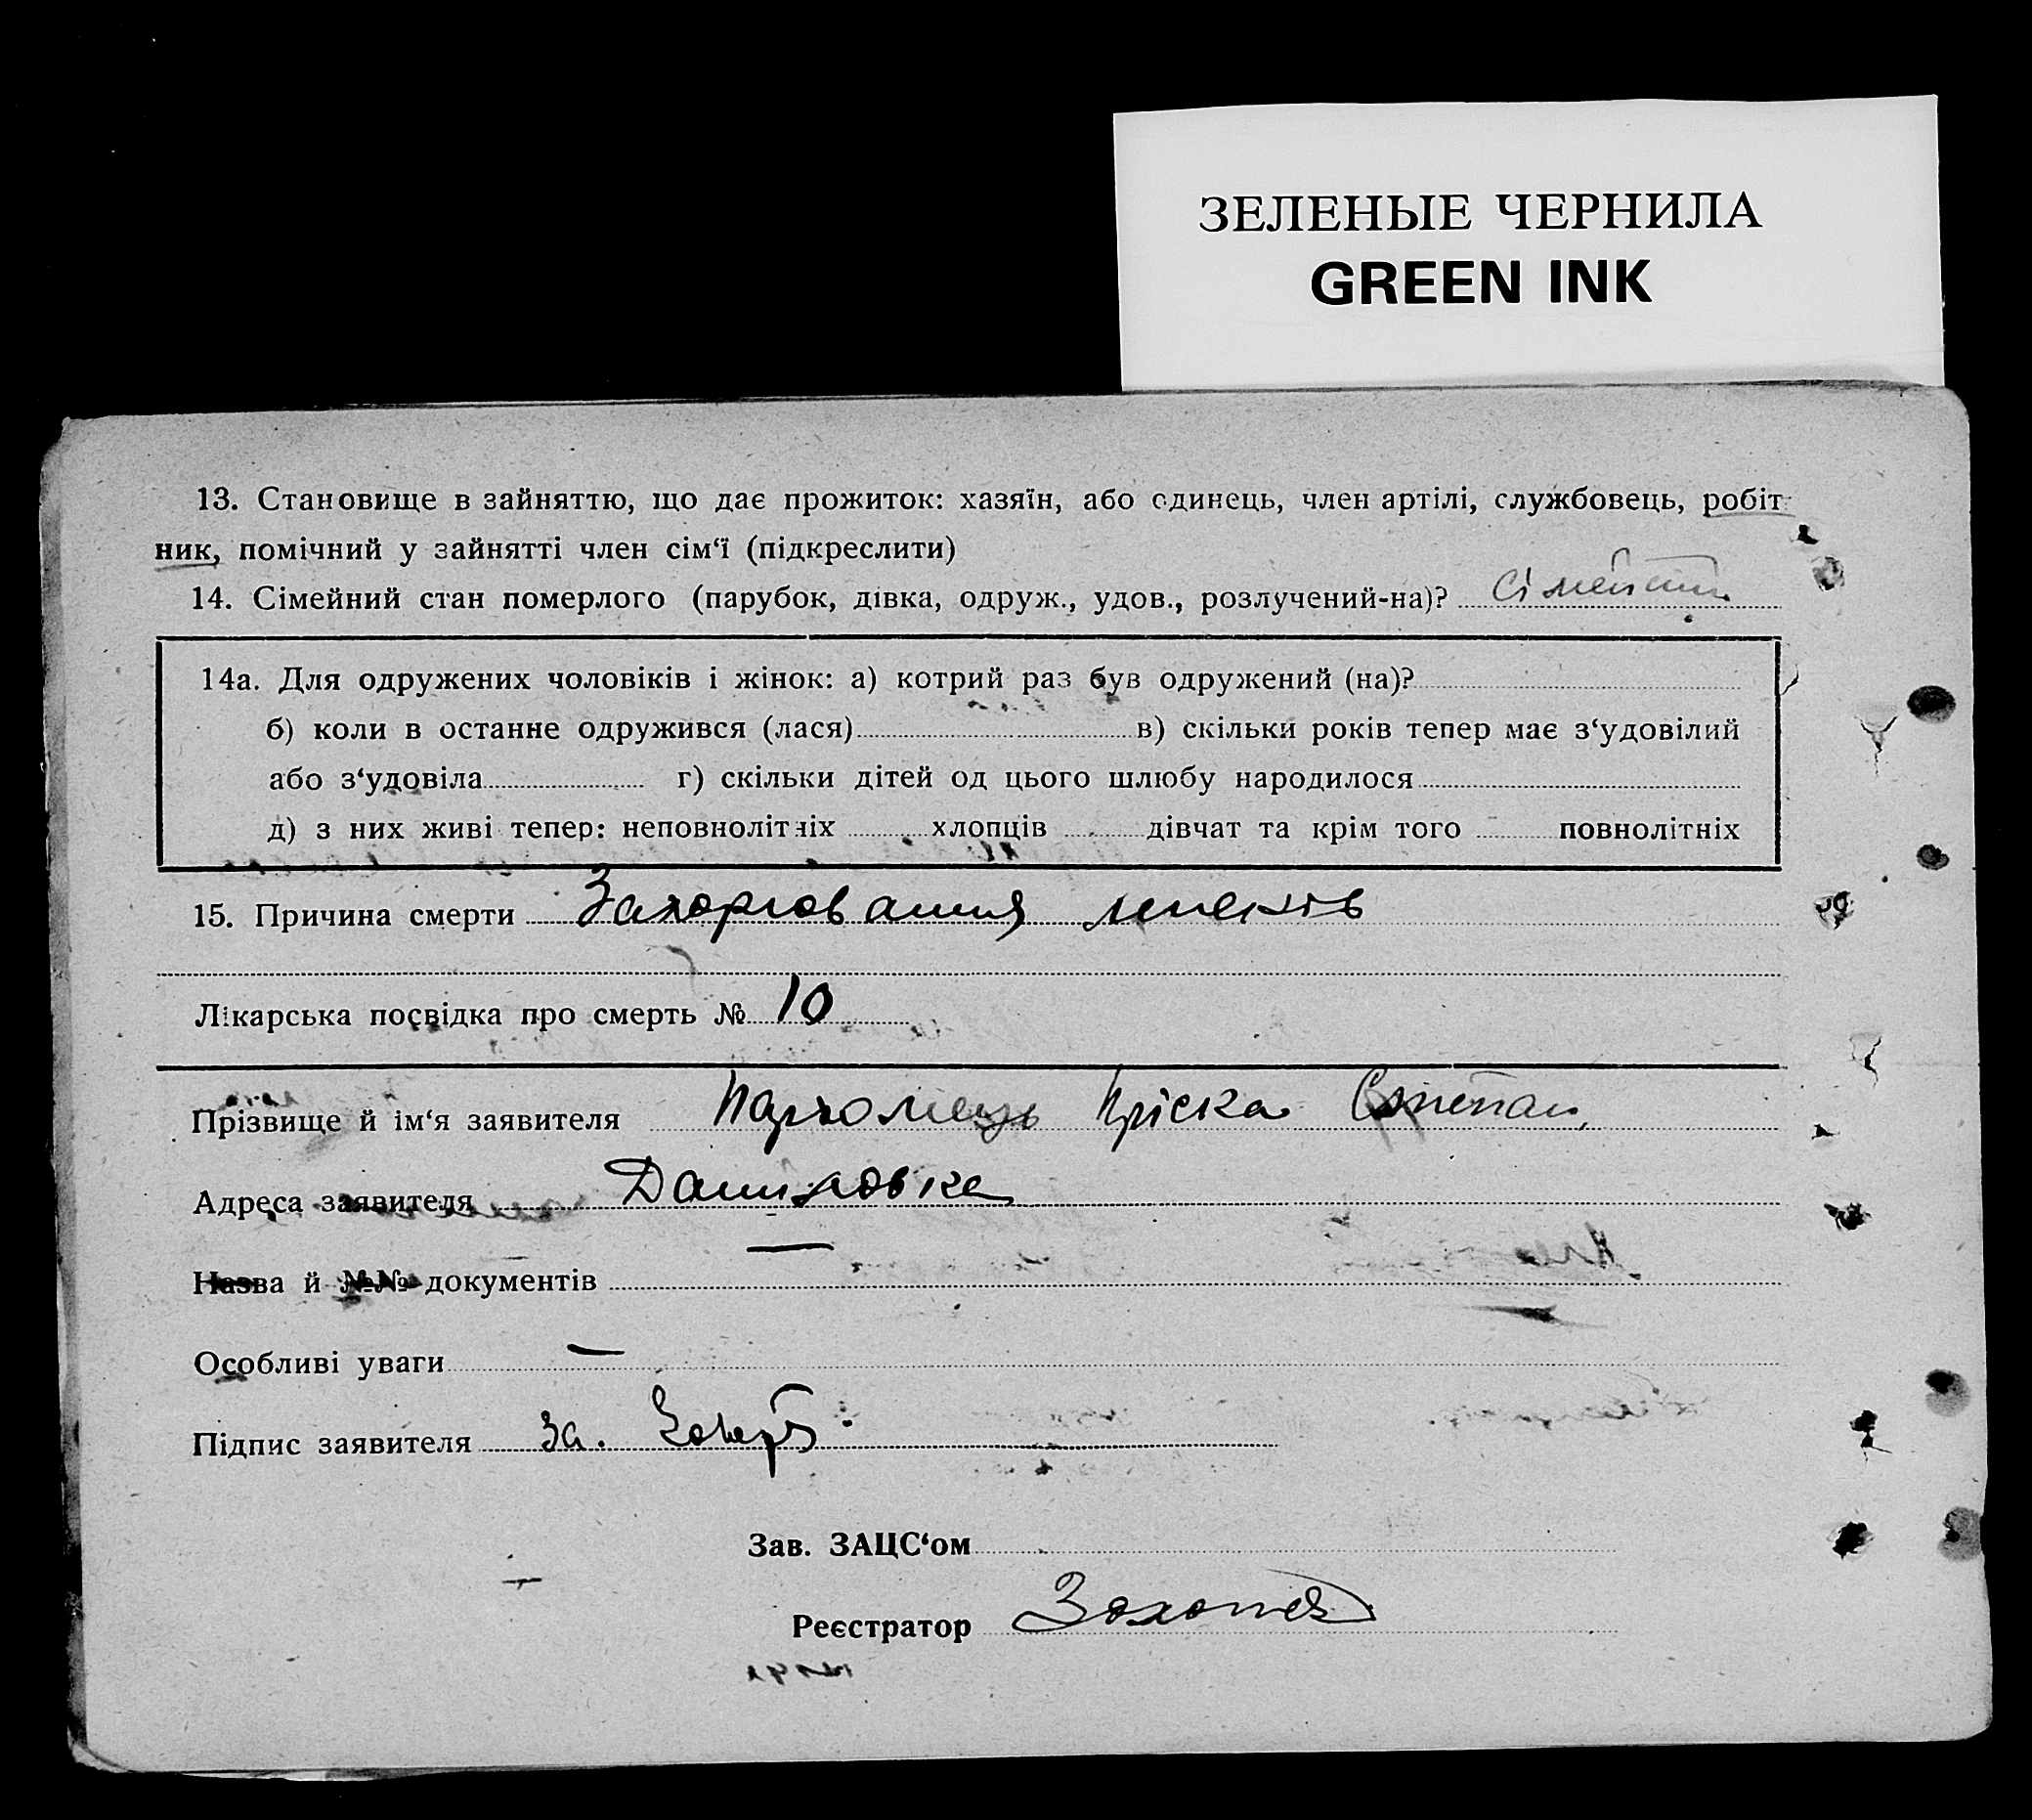 ЗЕЛЕНЫЕ ЧЕРНИЛА
GREEN INK
13. Становище в зайняттю, що дає прожиток: хазяїн, або одинець, член артілі, службовець, робіт-
ник, помічний у зайнятті член сім‘ї (підкреслити)
14. Сімейний стан померлого (парубок, дівка, одруж., удов., розлучений-на)?
14а. Для одружених чоловіків і жінок: а) котрий раз був одружений (на)?
б) коли в останнє одружився (лася) в) скільки років тепер має з‘удовілий
або з‘удовіла г) скільки дітей од цього шлюбу народилося
д) з них живі тепер: неповнолітніх хлопців дівчат та крім того повнолітніх
15. Причина смерти Захорювання легенів
Лікарська посвідка про смерть № 10
Прізвище й ім‘я заявителя Пархомець Пріська Степан.
Адреса заявителя Даниловка
Назва й №№ документів —
Особливі уваги —
Підпис заявителя За.
Зав. ЗАЦС‘ом
Реєстратор